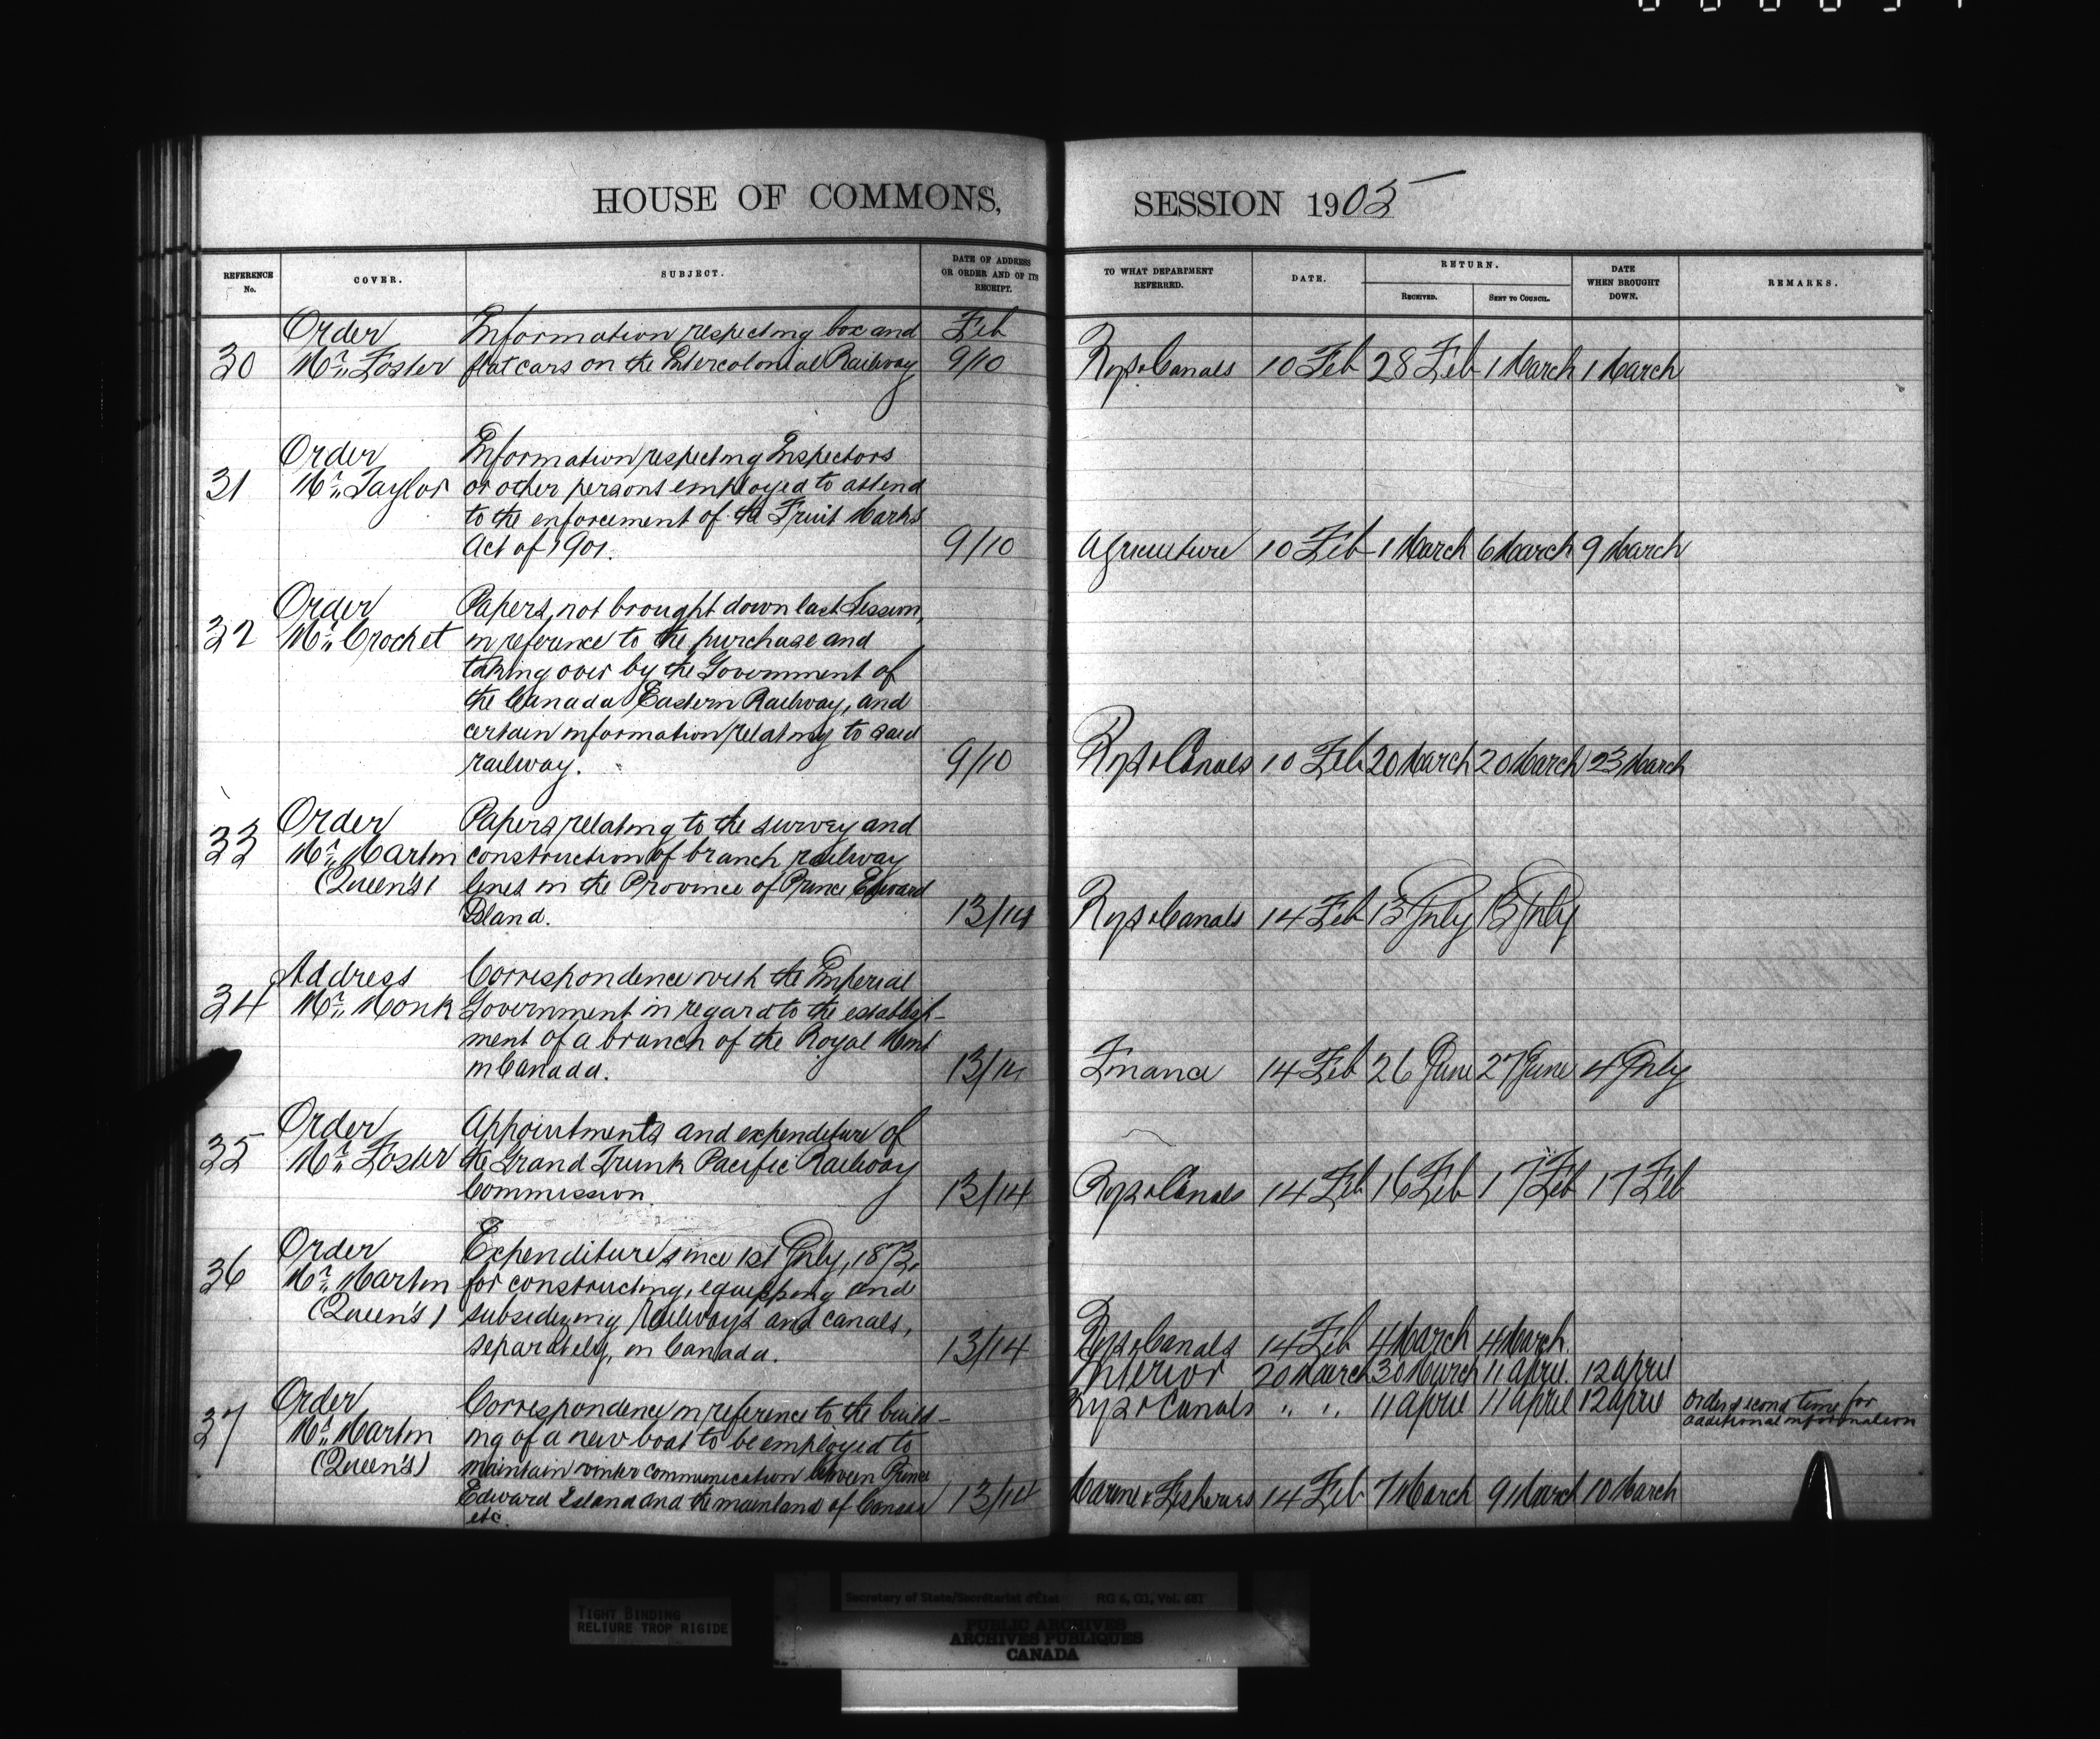 HOUSE OF COMMONS,
SESSION 1905
REFERENCE No.
COVER.
SUBJECT.
DATE OF ADDRESS OR ORDER AND OF ITS RECEIPT.
TO WHAT DEPARTMENT REFERRED.
DATE.
RETURN.
RECEIVED.
SENT TO COUNCIL.
DATE WHEN BROUGHT DOWN.
REMARKS.
Order Information respecting box and Feb
30 Mr. Foster flat cars on the Intercolonial Railway 9/10 Rys & Canals 10 Feb 28 Feb 1 March 1 March
Order Information respecting Inspectors
31 Mr. Taylor or other persons employed to attend
to the enforcement of the Fruit Marks
Act of 1901. 9/10 Agriculture 10 Feb 1 March 6 March 9 March
Order Papers, not brought down last Session,
32 Mr. Crochet in reference to the purchase and
taking over by the Government of
the Canada Eastern Railway, and
certain information relating to said
railway. 9/10 Rys & Canals 10 Feb 20 March 20 March 23 March
Order Papers relating to the survey and
33 Mr. Martin construction of branch railway
(Queen's) lines in the Province of Prince Edward
Island. 13/14 Rys & Canals 14 Feb 13 July 13 July
Address Correspondence with the Imperial
34 Mr. Monk Government in regard to the establish-
ment of a branch of the Royal Mint
in Canada. 13/14 Finance 14 Feb 26 June 27 June 4 July
Order Appointments and expenditure of
35 Mr. Foster the Grand Trunk Pacific Railway
Commission 13/14 Rys & Canals 14 Feb 16 Feb 17 Feb 17 Feb
Order Expenditure since 1st July, 1873,
36 Mr. Martin for constructing, equipping and
(Queen's) subsidizing railways and canals,
separately, in Canada. 13/14 Rys & Canals 14 Feb 4 March 4 March.
Interior 20 March 30 March 11 April. 12 April
Order Correspondence in reference to the build- Rys & Canals " " 11 April 11 April 12 April Order second time for
additional information
37 Mr. Martin ing of a new boat to be employed to
(Queen's) maintain winter communication between Prince
Edward Island and the mainland of Canada 13/14 Marine & Fisheries 14 Feb 7 March 9 March 10 March
etc.
TIGHT BINDING
RELIURE TROP RIGIDE
Secretary of State/Secrétariat d'Etat RG 6, G1, Vol. 681
PUBLIC ARCHIVES
ARCHIVES PUBLIQUES
CANADA